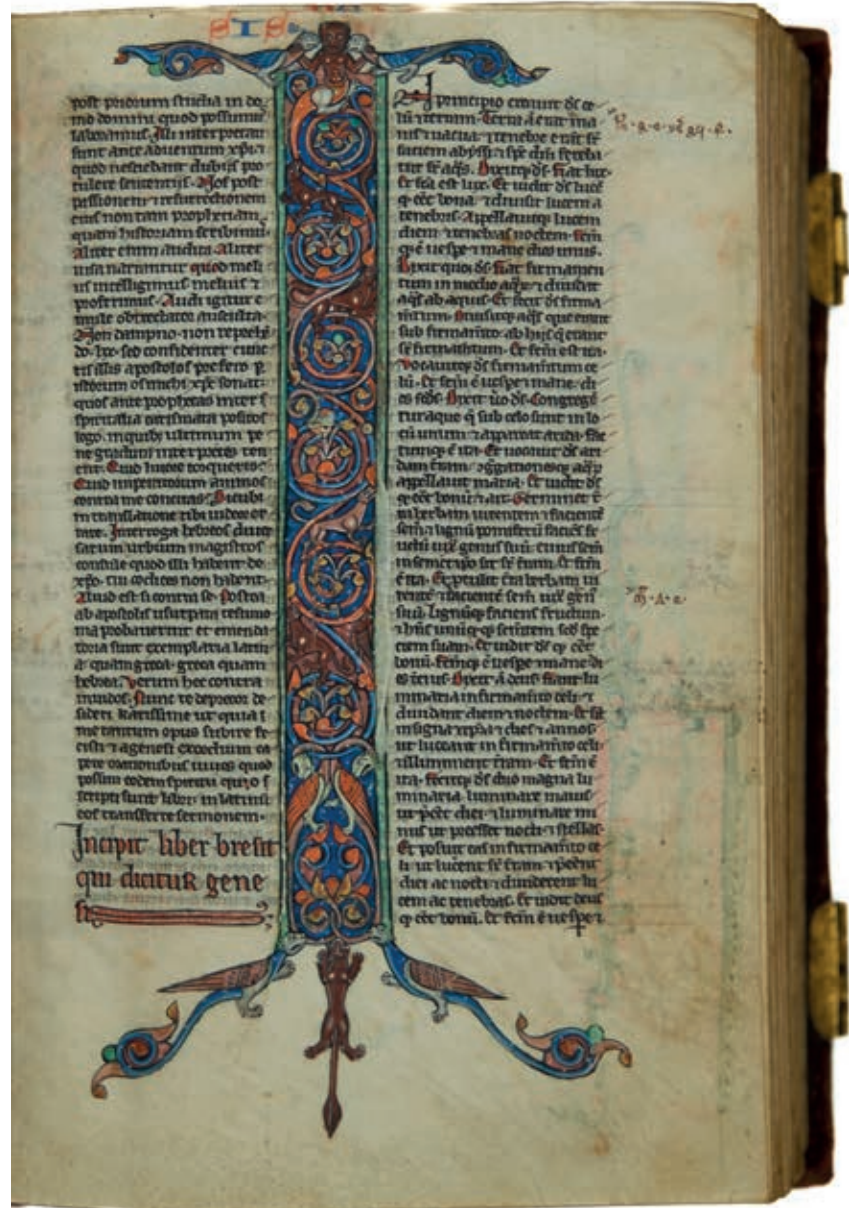 SIS
post priorum studia in do
mo domini quod possumus
laboramus. Illi interpretati
sunt ante aduentum xp̄i. ⁊
quod nesciebant dubijs pro
tulere sententijs. Nos post
passionem ⁊ resurrectionem
eius non tam prophetiam
quam historiam scribimus.
Aliter enim audita. aliter
uisa narrantur. quod meli
us intelligimus melius ⁊
proferimus. Audi igitur e
mule obtrectator ausculta.
Non dampno. non reprehē
do. lxx. sed confidenter cunc
tis illis apostolos prefero. P
istorum os michi xp̄c sonat.
quos ante prophetas inter s
spiritalia carismata positos
lego. in quibus ultimum pe
ne gradum interpretes ten
ent. Quid liuore torqueris.
Quid imperitorum animos
contra me concitas. Sicubi
in translatione tibi uideor er
rare. Interroga hebreos diuer
sarum urbium magistros
consule. quod illi habent de
xp̄o. tui codices non habent.
Aliud est si contra se postea
ab apostolis usurpata testimo
nia probauerint et emenda
tiora sunt exemplaria latin
a quam greca. greca quam
hebrea. Verum hec contra
inuidos. Nunc te deprecor de
sideri karissime ut quia i
me tantum opus subire fe
cisti ⁊ a genesi exordium ca
pere orationibus iuues quod
possim eodem spiritu quo s
scripti sunt libri. in latinū
eos transferre sermonem.
Incipit liber bresit
qui dicitur gene
sis
In principio creauit ds̄ ce
lū ⁊ terram. Terra aū erat ina
nis ⁊ uacua ⁊ tenebre erāt sr̄
faciem abyssi. ⁊ sp̄c dn̄i fereba
tur sr̄ aq̄s. Dixitq; ds̄. fiat lux.
Et fc̄a est lux. Et uidit ds̄ lucē
q̄ cēt bona. ⁊ diuisit lucem a
tenebris. Appellauitq; lucem
diem. ⁊ tenebras noctem. fc̄m
q̄ ē uespe ⁊ mane dies unus.
Dixit quoq; ds̄. fiat firmamen
tum in medio aq̄ꝝ. ⁊ diuidat
aq̄s ab aquis. Et fecit ds̄ firma
m̄tum. Diuisitq; aq̄s que erant
sub firmam̄to. ab hijs q̄ erant
sr̄ firmam̄tum. Et fc̄m est ita.
Vocauitq; ds̄ firmam̄tum ce
lū. Et fc̄m ē uespe ⁊ mane. di
es sc̄ds. Dixit ūo ds̄. Congregē
tur aque q̄ sub celo sunt in lo
cū unum. ⁊ appareat arida. fac
tumq; ē ita. Et uocauit ds̄ ari
dam t̄ram. ↄ̄gregationesq; aq̄ꝝ
appellauit maria. Et uidit ds̄
q̄ cēt bonū. ⁊ ait. Germinet t̄
ra herbam uirentem ⁊ facientē
sem̄. ⁊ lignū pomiferū faciēs fr
uctū iux̄ genus suū. cuius sem̄
in semet ip̄o sit sr̄ t̄ram. Et fc̄m
ē ita. Et p̄tulit t̄ra herbam ui
rentē ⁊ facientē sem̄ iux̄ gen̄
suū. Lignūq; faciens fructum.
⁊ hn̄s unūq̄q; sem̄tem sc̄d spe
ciem suam. Et uidit ds̄ q̄ cēt
bonū. fc̄mq; ē uespe ⁊ mane di
es t̄cius. Dixit aū deus. fiant lu
minaria in firmam̄to celi. ⁊
diuidant diem ⁊ noctem. Et sīt
in signa ⁊ tp̄a ⁊ dies ⁊ annos.
ut luceant in firmam̄to celi.
⁊ illuminent t̄ram. Et fc̄m ē
ita. fecitq; ds̄ duo magna lu
minaria. luminare maius
ut p̄cēt diei. ⁊ luminare mi
nus ut preesset nocti. ⁊ stellas.
Et posuit eas in firmam̄to ce
li. ut lucēnt sr̄ t̄ram. ⁊ p̄ēent
diei ac nocti. ⁊ diuiderent lu
cem ac tenebras. Et uidit deus
q̄ cēt bonū. Et fc̄m ē uespe ⁊